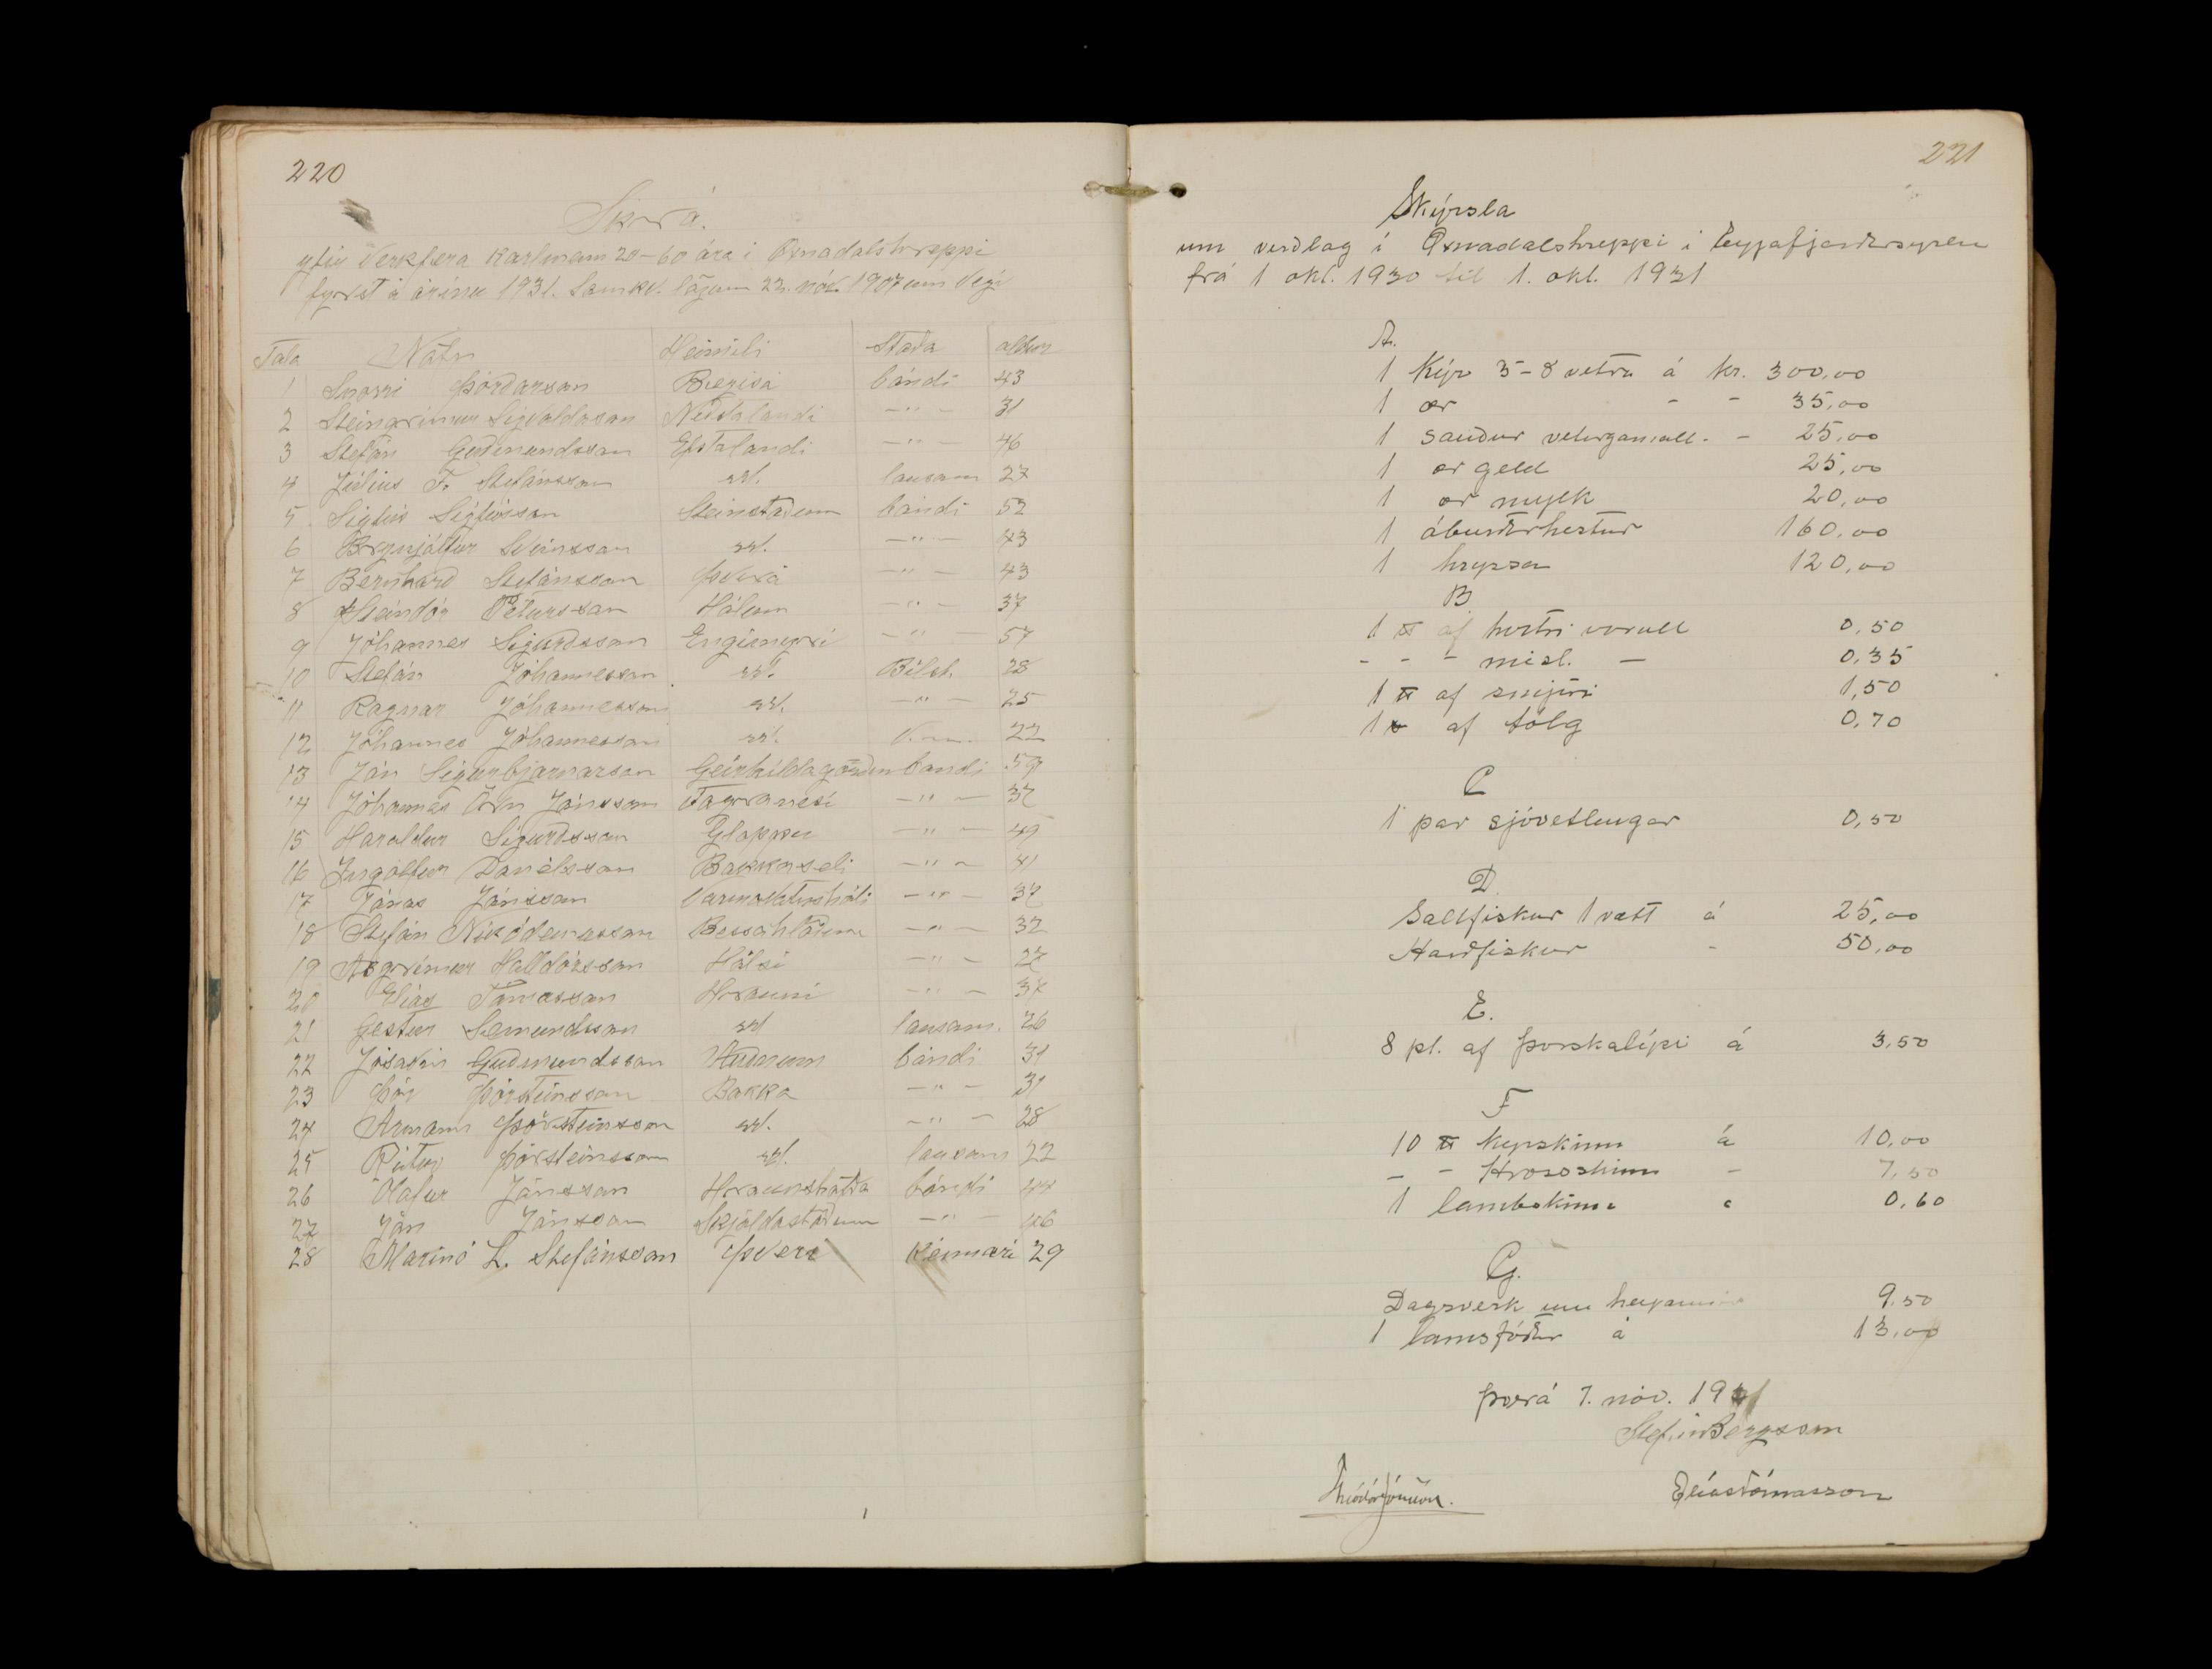 220
Skrá.
yfir Verkfera Karlmenn 20-60 ára i Öxnadalshreppi
fyrst á árinu 1931. Samkv. lögum 22. nóv. 1907 um Vegi
Tala Nafn Heimili Staða aldur
1 Snorri Þórðarson Bægisá bóndi 43
2 Steingrimur Sigvaldason Neðstalandi -"- 31
3 Stefán Guðmundsson Efstalandi -"- 46
4 Júlíus F. Stefánsson sst. lausam 27
5 Sigfús Sigfússon Steinstaðum bóndi 52
6 Brynjólfur Sveinsson sst. -"- 43
7 Bernharð Stefánsson Þverá -"- 43
8 Steindór Pétursson Hólum -"- 37
9 Jóhannes Sigurðsson Engimyri -"- 57
10 Stefán Jóhannesson sst. Bilst. 28
11 Ragnar Jóhannesson sst. -"- 25
12 Jóhannes Jóhannesson sst. 22
13 Jón Sigurbjarnarson Geirhildagörðum bondi 59
14 Jóhannes Örn Jónsson Fagranesi -"- 37
15 Haraldur Sigurðsson Gloppu -"- 49
16 Ingólfur Daníelsson Bakkaseli -"- 41
17 Jónas Jónsson Varmavatnshóli -"- 37
18 Stefán Nikódemusson Bessahlöðum -"- 32
19 Asgrímur Halldórsson Hálsi -"- 27
20 Elias Tómasson Hrauni -"- 37
21 Gestur Sæmundsson sst lausam. 26
22 Jósavin Guðmundsson Auðnum bóndi 31
23 Þór Þorsteinsson Bakka -"- 31
24 Armann Þorsteinsson sst. -"- 28
25 Rútur Þorsteinsson sst. lausam 22
26 Ólafur Jónsson Hraunshöfða bóndi 44
27 Jón Jónsson Skjaldastöðum -"- 46
28 Marinó L. Stefánsson Þverá Kennari 29
221
Skýrsla
um verðlag í Öxnadalshreppi i Eyjafjarðarsyslu
frá 1 okt. 1930 til 1. okt. 1931
A.
1 Kýr 3-8 vetra á kr. 300,00
1 ær - - 35,00
1 sauður veturgamall. - 25,00
1 ær geld 25,00
1 ær mylk 20,00
1 áburðarhestur 160,00
1 hryssa 120,00
B
1 ℔ af hvítri vorull 0,50
- - - misl. - 0,35
1 ℔ af smjöri 1,50
1 ℔ af tólg 0,70
C
1 par sjóvetlingar 0,50
D.
Saltfiskur 1 vætt á 25,00
Harðfiskur - 50,00
E.
8 pt. af þorskalýsi á 3,50
F
10 ℔ kyrskinn á 10,00
- - Hrossskinn - 7,50
1 lambskinn 0,60
G.
Dagsverk um heyannir 9.50
1 lamsfóður á 13,00
Þverá 7. nóv. 1931
Stefán Bergsson
Elías Tómasson